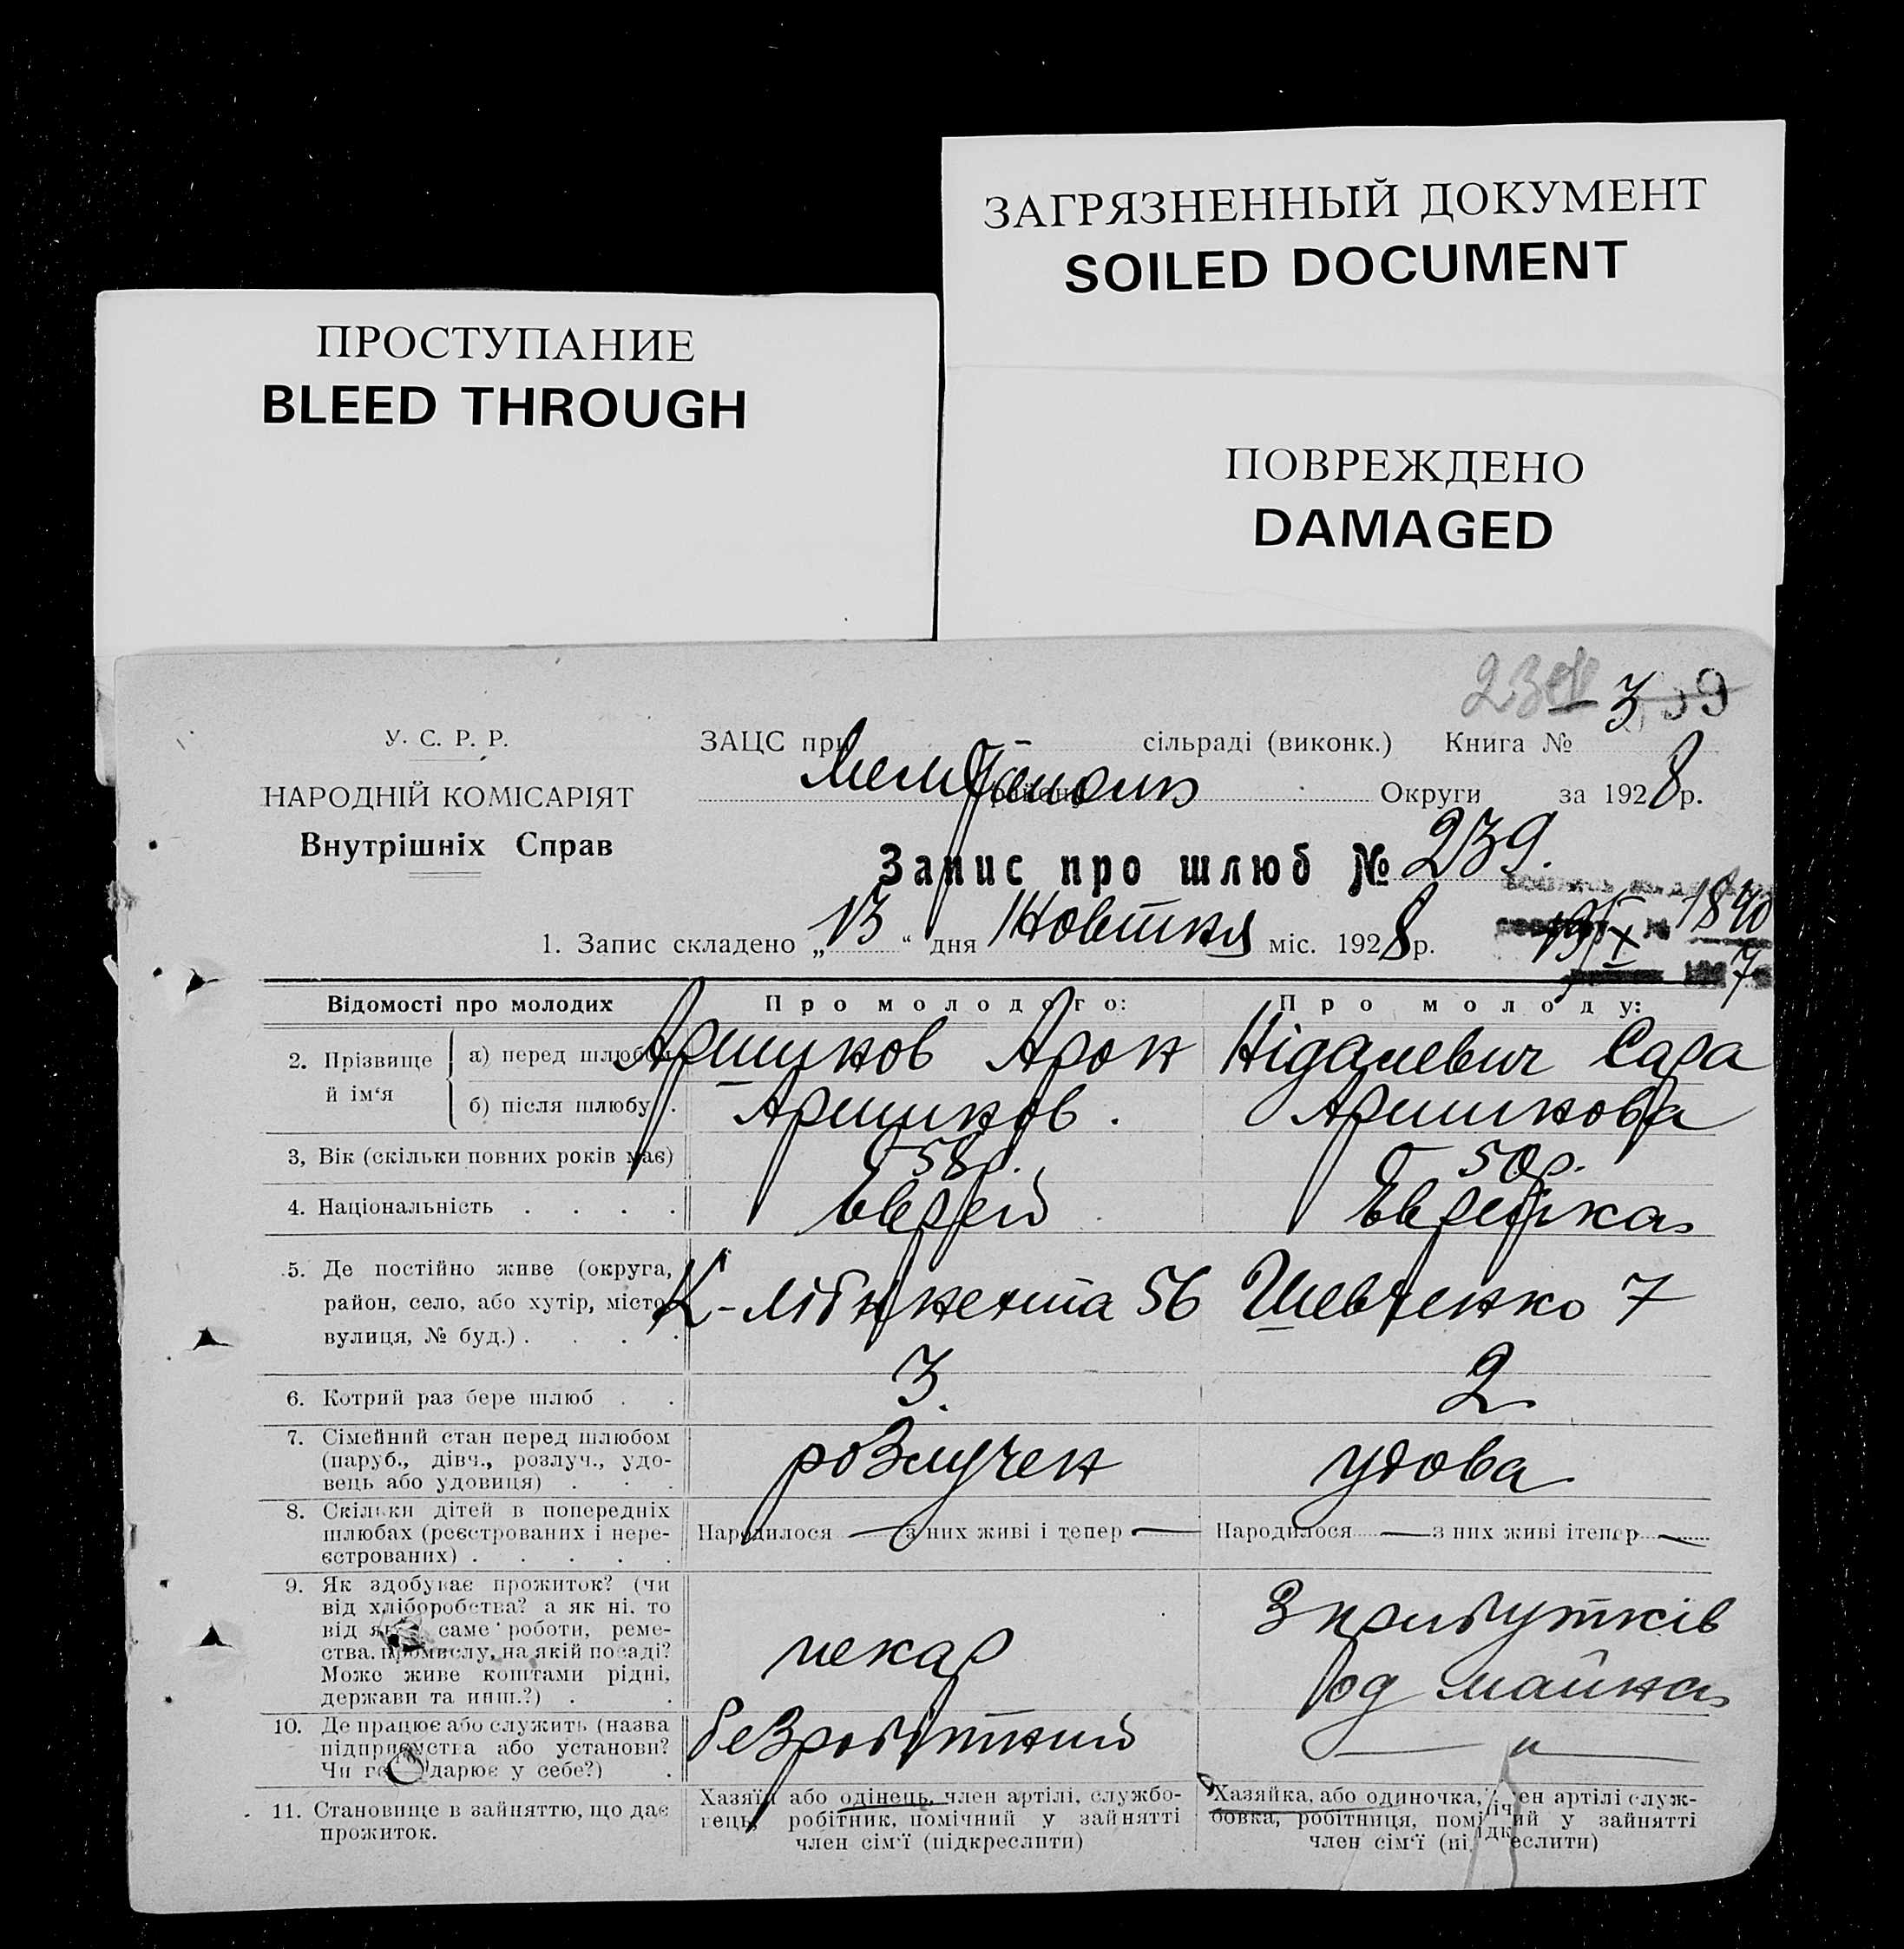 ЗАГРЯЗНЕННЫЙ ДОКУМЕНТ
SOILED DOCUMENT
ПРОСТУПАНИЕ
BLEED THROUGH
ПОВРЕЖДЕНО
DAMAGED
У. С. Р. Р.
НАРОДНІЙ КОМІСАРІЯТ
Внутрішніх Справ
ЗАЦС при сільраді (виконк.) Книга № 3
Округи за 1928 р.
Запис про шлюб № 239.
1. Запис складено „13“ дня Жовтня міс. 1928 р.
Відомості про молодих Про молодого: Про молоду:
2. Прізвище й ім‘я
а) перед шлюбом Аршиков Арон Сара
б) після шлюбу . Аршиков. Аршикова
3, Вік (скільки повних років має) 58 р. 50 р.
4. Національність . . . . Еврей Еврейка
5. Де постійно живе (округа,
район, село, або хутір, місто,
вулиця, № буд.) . . . . К-Лібкнехта 56 Шевченко 7
6. Котрий раз бере шлюб . . 3. 2
7. Сімейний стан перед шлюбом
(паруб., дівч., розлуч., удо-
вець або удовиця) . . . розлучен удова
8. Скільки дітей в попередніх
шлюбах (реєстрованих і нере-
єстрованих) . . . . . Народилося — з них живі і тепер — Народилося — з них живі ітепер —
9. Як здобуває прожиток? (чи
від хліборобства? а як ні, то
від саме роботи, реме-
ства, промислу, на якій посаді?
Може живе коштами рідні,
держави та инш.?) . . пекар З прибутків од майна
10. Де працює або служить (назва
підприємства або установи?
Чи у себе?) . безробітний — " —
11. Становище в зайняттю, що дає
прожиток.
Хазяїн або одінець, член артілі, службо-
вець, робітник, помічний у зайнятті
член сім‘ї (підкреслити)
Хазяйка, або одиночка, артілі служ-
бовка, робітниця, у зайнятті
член сім‘ї